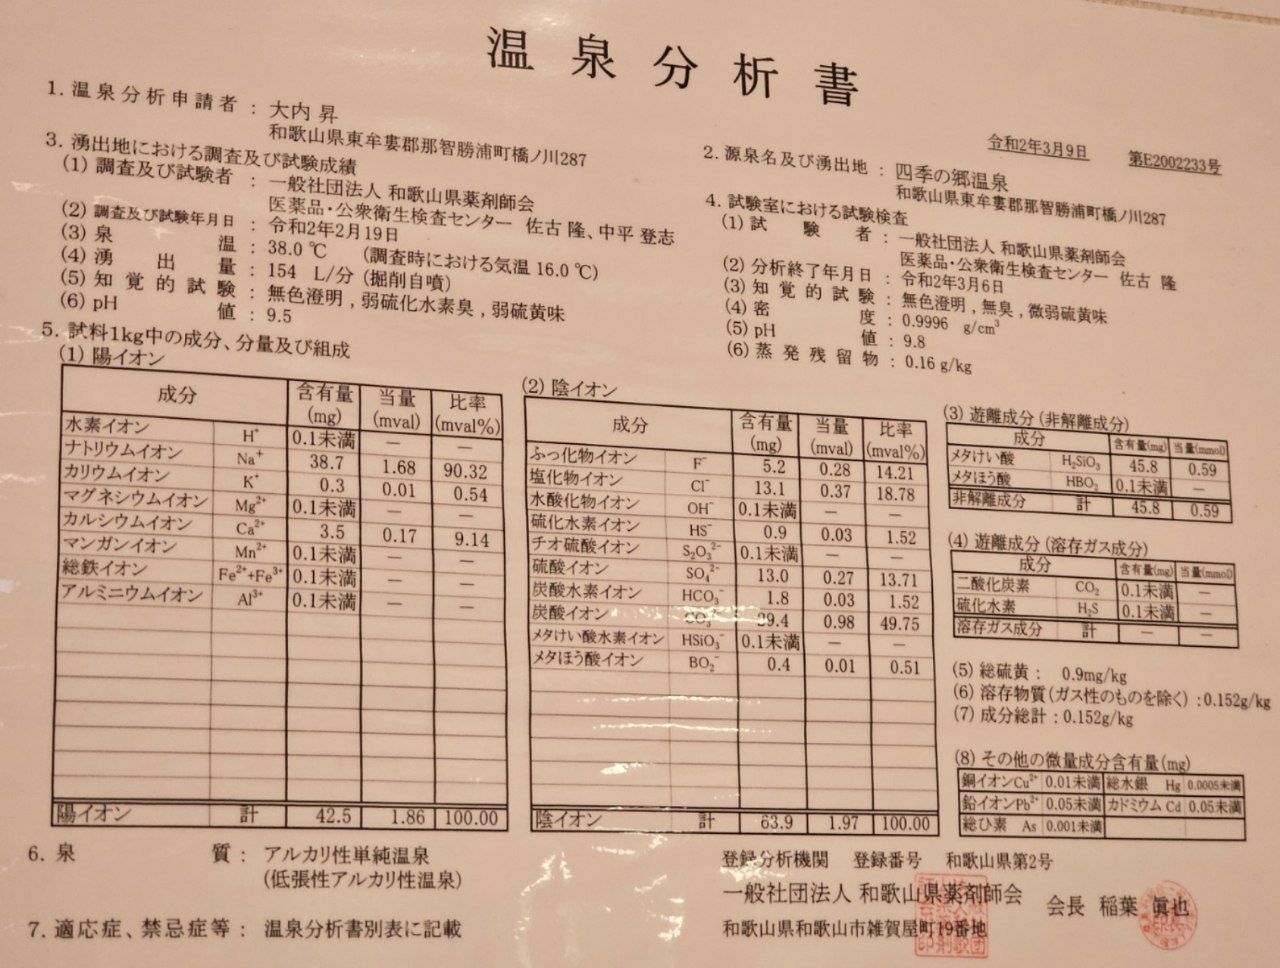 温泉分析書
1. 温泉分析申請者 : 大内 昇
和歌山県東牟婁郡那智勝浦町橋ノ川287
令和2年3月9日 第E2002233号
2. 源泉名及び湧出地 : 四季の郷温泉
和歌山県東牟婁郡那智勝浦町橋ノ川287
3. 湧出地における調査及び試験成績
(1) 調査及び試験者 : 一般社団法人 和歌山県薬剤師会
医薬品・公衆衛生検査センター 佐古 隆、中平 登志
(2) 調査及び試験年月日 : 令和2年2月19日
(3) 泉温 : 38.0 ℃ (調査時における気温 16.0 ℃)
(4) 湧出量 : 154 L/分 (掘削自噴)
(5) 知覚的試験 : 無色澄明 , 弱硫化水素臭 , 弱硫黄味
(6) pH値 : 9.5
4. 試験室における試験検査
(1) 試験者 : 一般社団法人 和歌山県薬剤師会
医薬品・公衆衛生検査センター 佐古 隆
(2) 分析終了年月日 : 令和2年3月6日
(3) 知覚的試験 : 無色澄明 , 無臭 , 微弱硫黄味
(4) 密度 : 0.9996 g/cm³
(5) pH値 : 9.8
(6) 蒸発残留物 : 0.16 g/kg
5. 試料1kg中の成分、分量及び組成
(1) 陽イオン
成分 含有量(mg) 当量(mval) 比率(mval%)
水素イオン H⁺ 0.1未満 — —
ナトリウムイオン Na⁺ 38.7 1.68 90.32
カリウムイオン K⁺ 0.3 0.01 0.54
マグネシウムイオン Mg²⁺ 0.1未満 — —
カルシウムイオン Ca²⁺ 3.5 0.17 9.14
マンガンイオン Mn²⁺ 0.1未満 — —
総鉄イオン Fe²⁺+Fe³⁺ 0.1未満 — —
アルミニウムイオン Al³⁺ 0.1未満 — —
陽イオン 計 42.5 1.86 100.00
(2) 陰イオン
成分 含有量(mg) 当量(mval) 比率(mval%)
ふっ化物イオン F⁻ 5.2 0.28 14.21
塩化物イオン Cl⁻ 13.1 0.37 18.78
水酸化物イオン OH⁻ 0.1未満 — —
硫化水素イオン HS⁻ 0.9 0.03 1.52
チオ硫酸イオン S₂O₃²⁻ 0.1未満 — —
硫酸イオン SO₄²⁻ 13.0 0.27 13.71
炭酸水素イオン HCO₃⁻ 1.8 0.03 1.52
炭酸イオン CO₃²⁻ 29.4 0.98 49.75
メタけい酸水素イオン HSiO₃⁻ 0.1未満 — —
メタほう酸イオン BO₂⁻ 0.4 0.01 0.51
陰イオン 計 63.9 1.97 100.00
(3) 遊離成分 (非解離成分)
成分 含有量(mg) 当量(mmol)
メタけい酸 H₂SiO₃ 45.8 0.59
メタほう酸 HBO₂ 0.1未満 —
非解離成分 計 45.8 0.59
(4) 遊離成分 (溶存ガス成分)
成分 含有量(mg) 当量(mmol)
二酸化炭素 CO₂ 0.1未満 —
硫化水素 H₂S 0.1未満 —
溶存ガス成分 計 — —
(5) 総硫黄 : 0.9mg/kg
(6) 溶存物質 (ガス性のものを除く) : 0.152g/kg
(7) 成分総計 : 0.152g/kg
(8) その他の微量成分含有量(mg)
銅イオンCu²⁺ 0.01未満 総水銀 Hg 0.0005未満
鉛イオンPb²⁺ 0.05未満 カドミウム Cd 0.05未満
総ひ素 As 0.001未満
6. 泉質 : アルカリ性単純温泉
(低張性アルカリ性温泉)
7. 適応症、禁忌症等 : 温泉分析書別表に記載
登録分析機関 登録番号 和歌山県第2号
一般社団法人 和歌山県薬剤師会 会長 稲葉 眞也
和歌山県和歌山市雑賀屋町19番地